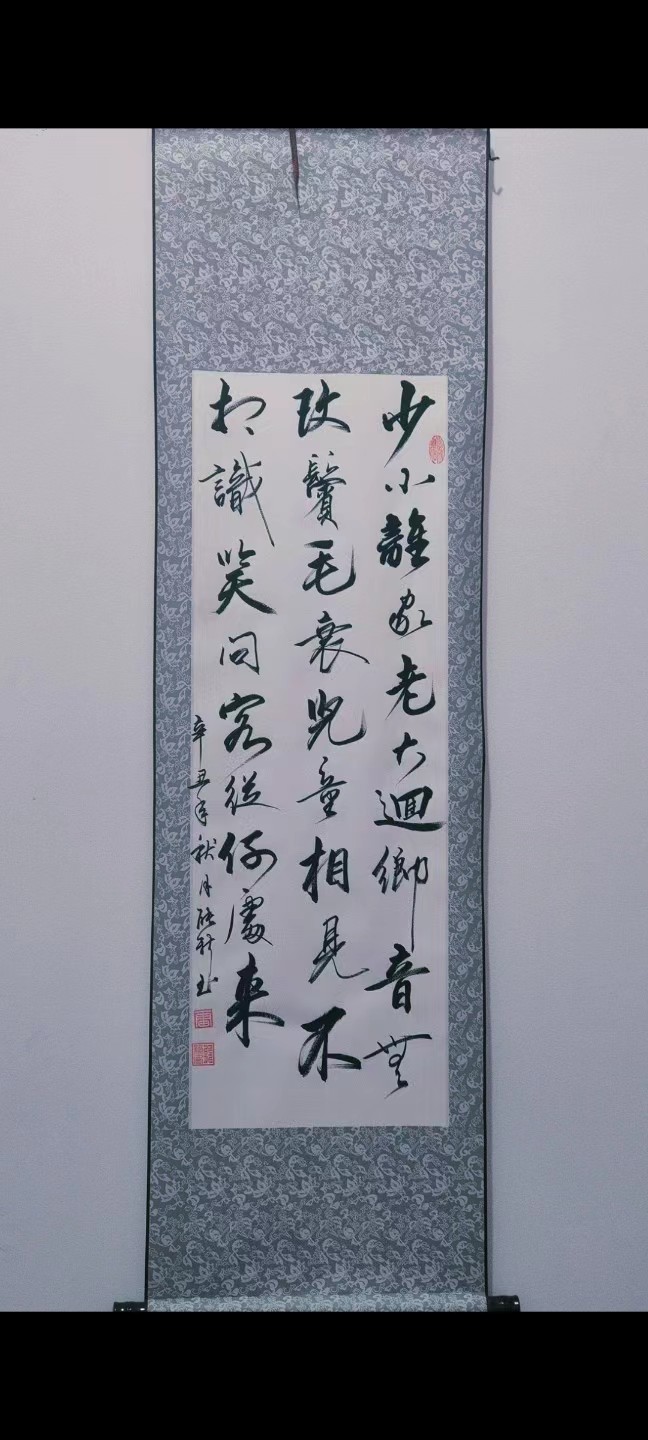 少小離家老大迴鄉音無
改鬢毛衰兒童相見不
相識笑問客從何處來
辛丑年秋月